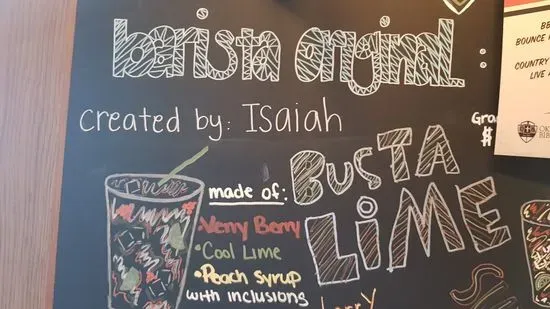 barista original
created by: Isaiah
made of:
BUSTA
LIME
• Verry Berry
• Cool Lime
• Peach Syrup
with inclusions
BOUNCE
COUNTRY
LIVE
$